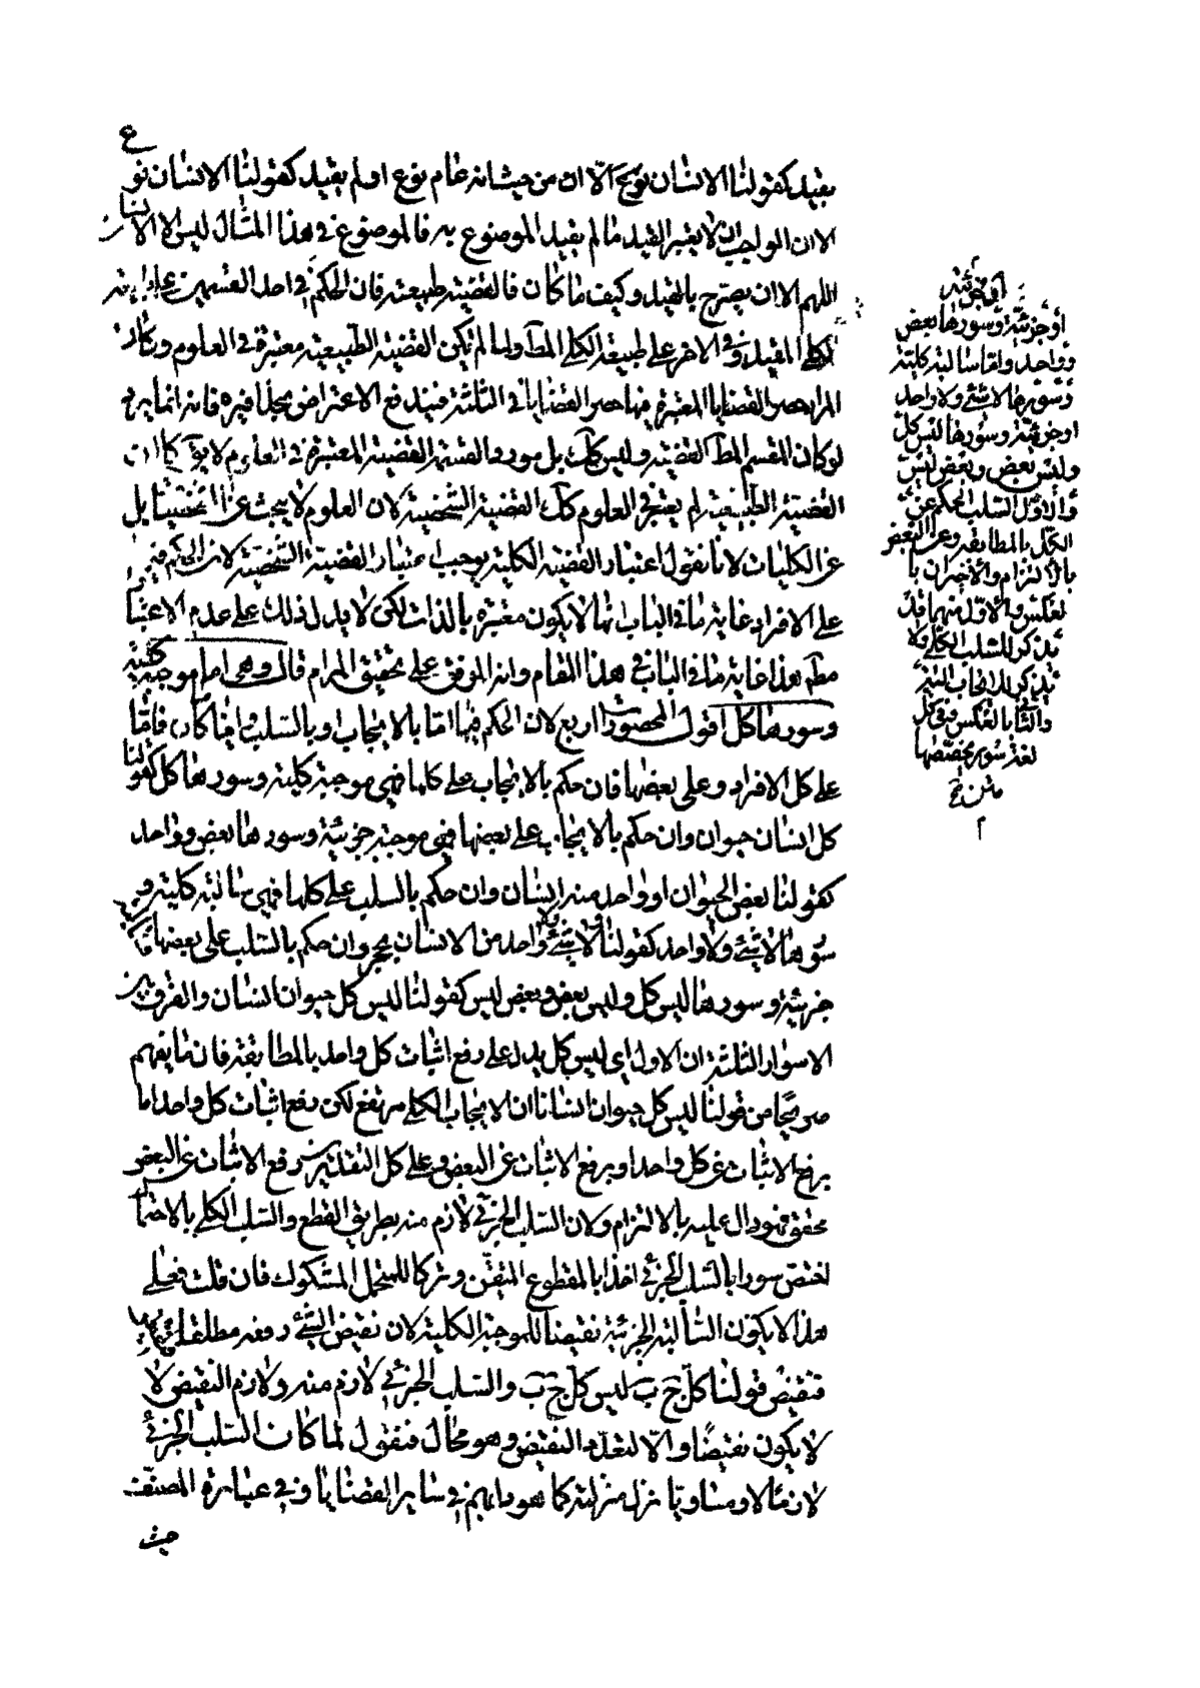 يقيد كقولنا الانسان نوع الا ان من حيث انه عام نوع او لم يقيد كقولنا الانسان نوع
الا ان الواجب ان لا يعتبر القيد ما لم يقيد الموضوع به فالموضوع في هذا المثال ليس الا الانسان
اللهم الا ان يصرح بالقيد وكيف ما كان فالقضية طبيعية فان الحكم في احد القسمين على طبيعة
الكلي المقيد وفي الاخر على طبيعة الكلي المط ولما لم تكن القضية الطبيعية معتبرة في العلوم وكان
المراد حصر القضايا المعتبرة فيها حصر القضايا في الثلثة فيندفع الاعتراض فانه انما يرد
لو كان المقسم المط القضية وليس كك بل مورد القسمة القضية المعتبرة في العلوم لا يق كما ان
القضية الطبيعية لم يعتبر في العلوم كك القضية الشخصية لان العلوم لا يبحث عن الشخصيات بل
عن الكليات لانا نقول اعتبار القضية الكلية يوجب اعتبار القضية الشخصية لان الحكم فيها
على الافراد غاية ما في الباب انها لا يكون معتبرة بالذات لكن لا يدل ذلك على عدم الاعتبار
مط هذا غاية ما في الباب في هذا المقام والله الموفق على تحقيق المرام قال وهي اما موجبة كلية
وسورها كل اقول المحصورات اربع لان الحكم فيها اما بالايجاب او بالسلب وايا ما كان فاما
على كل الافراد وعلى بعضها فان حكم بالايجاب على كلها فهي موجبة كلية وسورها كل كقولنا
كل انسان حيوان وان حكم بالايجاب على بعضها فهي موجبة جزئية وسورها بعض وواحد
كقولنا بعض الحيوان او واحد منه انسان وان حكم بالسلب على كلها فهي سالبة كلية و
سورها لا شئ ولا واحد كقولنا لا شئ ولا واحد من الانسان بحجر وان حكم بالسلب على بعضها فهي سالبة
جزئية وسورها ليس كل وليس بعض وبعض ليس كقولنا ليس كل حيوان انسان والفرق بين
الاسوار الثلثة ان الاول اي ليس كل يدل على رفع اثبات كل واحد بالمطابقة فان ما يفهم
صريحا من قولنا ليس كل حيوان انسانا ان الايجاب الكلي مرتفع لكن رفع اثبات كل واحد اما
برفع الاثبات عن كل واحد او برفع الاثبات عن البعض وعلى كل التقديرين رفع الاثبات عن البعض
محقق فهو دال عليه بالالتزام ولان السلب الجزئي لازم منه بطريق القطع والسلب الكلي بالاحتمال
اختص سورا بالسلب الجزئي اخذا بالمقطوع المتيقن وتركا للمحتمل المشكوك فان قلت فعلى
هذا لا يكون السالبة الجزئية نقيضا للموجبة الكلية لان نقيض الشئ رفعه مطلقا
فنقيض قولنا كل ج ب ليس كل ج ب والسلب الجزئي لازم منه ولازم النقيض لا
لا يكون نقيضا والا لتعدد النقيض وهو محال فنقول لما كان السلب الجزئي
لازما له ومساويا نزل منزلته كما هو دابهم في ساير القضايا وفي عبارة المصنف
حيث
او جزئية
او جزئية وسورها بعض
وواحد واما سالبة كلية
وسورها لا شئ ولا واحد
او جزئية وسورها ليس كل
وليس بعض وبعض ليس
والاول لسلب الحكم عن
الكل بالمطابقة وعن البعض
بالالتزام والاخيران با
لعكس والاول منهما قد
يذكر للسلب الكلي ولا
يذكر للايجاب البتة
والثاني بالعكس وفي كل
لغة سور يخصها
متن